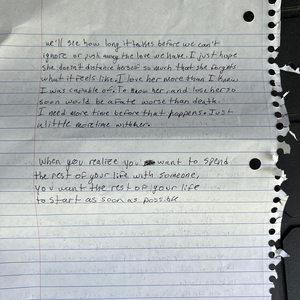 we'll see how long it takes before we can't
ignore or push away the love we have. I just hope
she doesn't distance herself so much that she forgets
what it feels like. I love her more than I knew
I was capable of. To know her, and lose her so
soon would be a fate worse than death.
I need more time before that happens. Just
a little more time with her.
When you realize you want to spend
the rest of your life with someone,
you want the rest of your life
to start as soon as possible